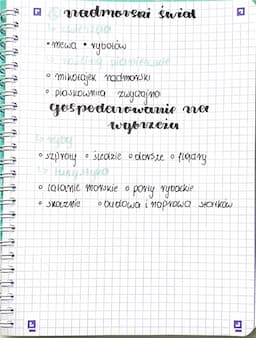 nadmorski świat
zwierzęta
• mewa • rybołów
rośliny
◦ mikołajek nadmorski
◦ piaskownica zwyczajna
gospodarowanie na
wybrzeżu
ryby
◦ szproty ◦ śledzie ◦ dorsze ◦ flądry
turystyka
◦ latarnie morskie ◦ porty rybackie
◦ skocznie ◦ budowa i naprawa statków